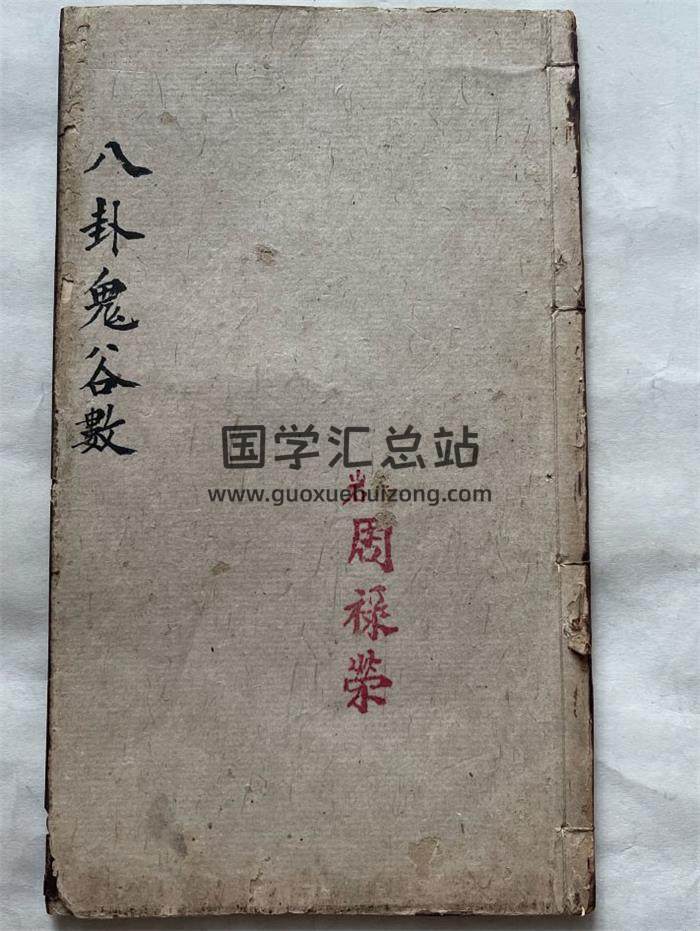 八卦鬼谷數
国学汇总站
www.guoxuehuizong.com
周禄荣